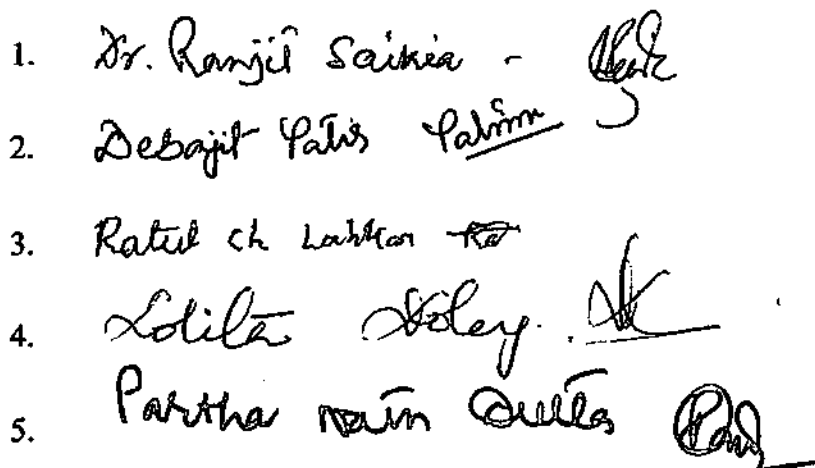 1. Dr. Ranjit Saikia -
2. Debajit Patir
3. Ratul ch Lahkar
4. Lolita
5. Partha Nath Dutta